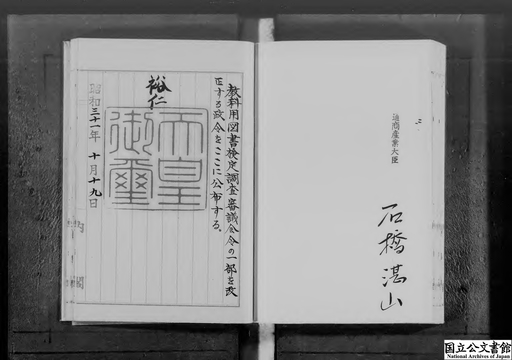 通商産業大臣
石橋湛山
教科用図書検定調査審議会令の一部を改
正する政令をここに公布する。
裕仁
天皇
御璽
昭和三十一年十月十九日
国立公文書館
National Archives of Japan